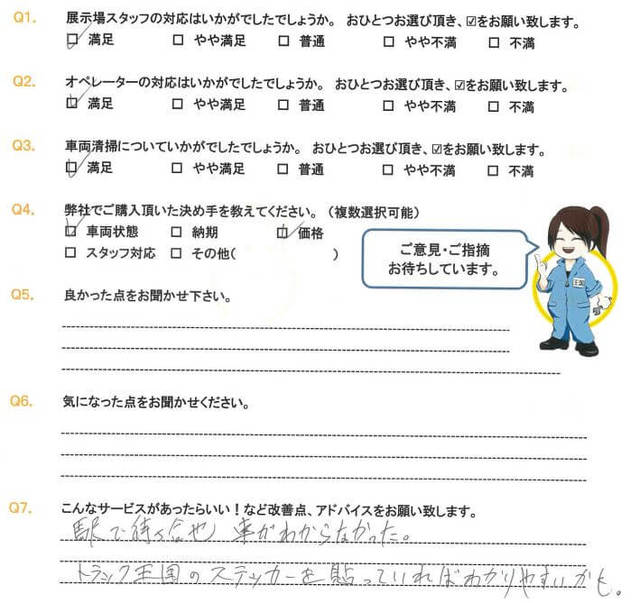 Q1. 展示場スタッフの対応はいかがでしたでしょうか。 おひとつお選び頂き、☑をお願い致します。
☑ 満足 □ やや満足 □ 普通 □ やや不満 □ 不満
Q2. オペレーターの対応はいかがでしたでしょうか。 おひとつお選び頂き、☑をお願い致します。
☑ 満足 □ やや満足 □ 普通 □ やや不満 □ 不満
Q3. 車両清掃についていかがでしたでしょうか。 おひとつお選び頂き、☑をお願い致します。
☑ 満足 □ やや満足 □ 普通 □ やや不満 □ 不満
Q4. 弊社でご購入頂いた決め手を教えてください。（複数選択可能）
☑ 車両状態 □ 納期 ☑ 価格
□ スタッフ対応 □ その他( )
ご意見・ご指摘
お待ちしています。
Q5. 良かった点をお聞かせ下さい。
Q6. 気になった点をお聞かせください。
Q7. こんなサービスがあったらいい！など改善点、アドバイスをお願い致します。
駅で待ち合せ 車がわからなかった。
トラック王国のステッカーを貼っていればわかりやすいかも。